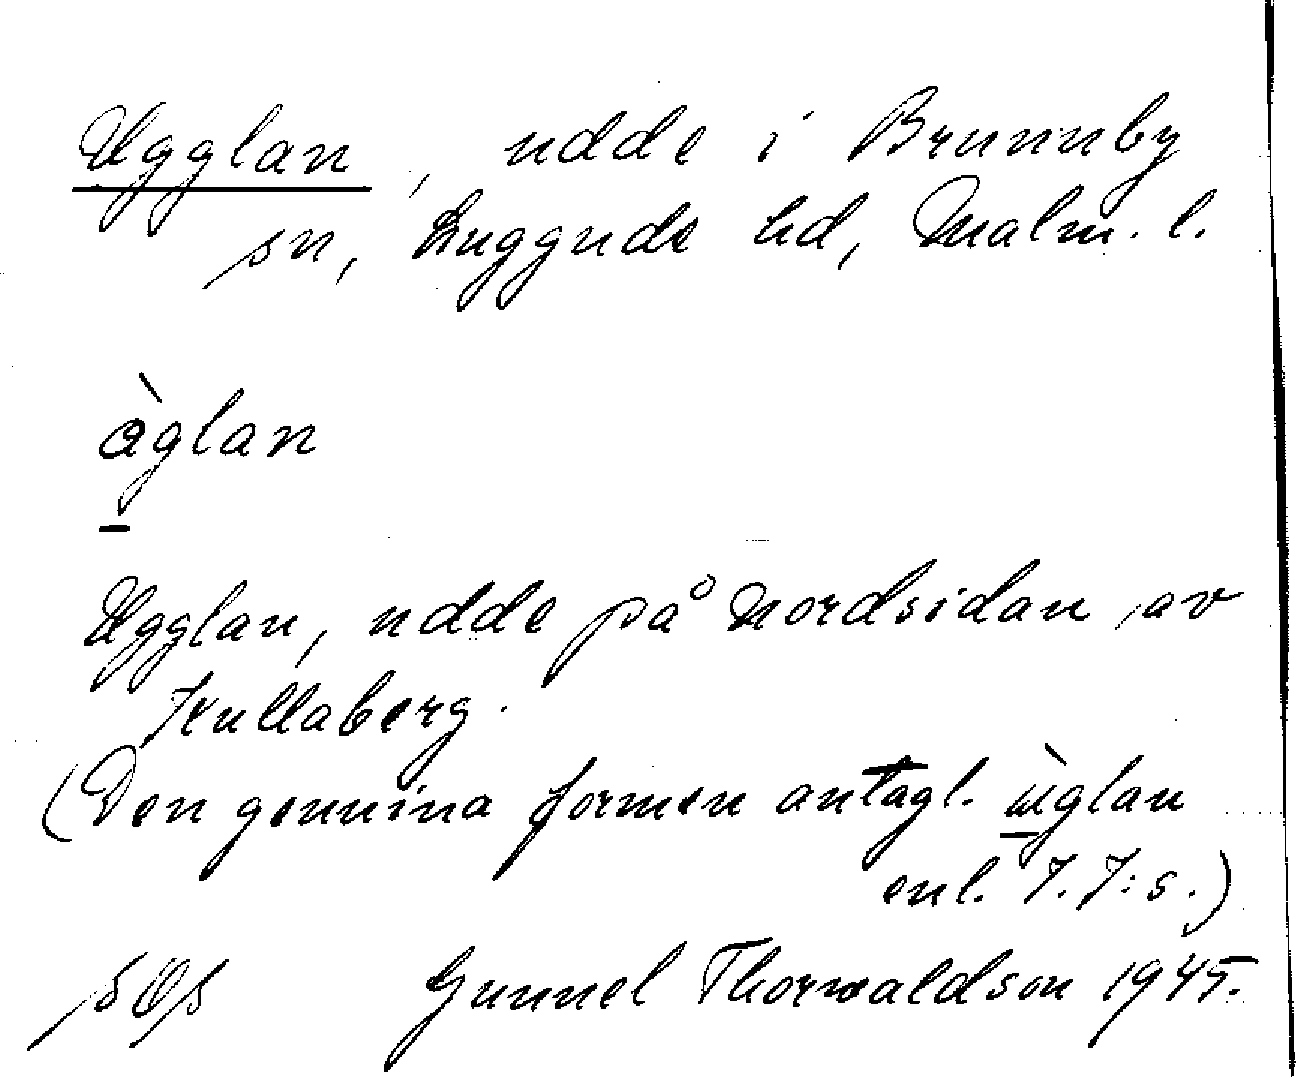 Ugglan, udde i Brunnby
sn, Luggude hd, Malm. l.
àglan
Ugglan, udde på Nordsidan av
Kullaberg.
(Den genuina formen antagl. ùglan
enl. I. I:s.)
SOS Gunnel Thorwaldson 1945.